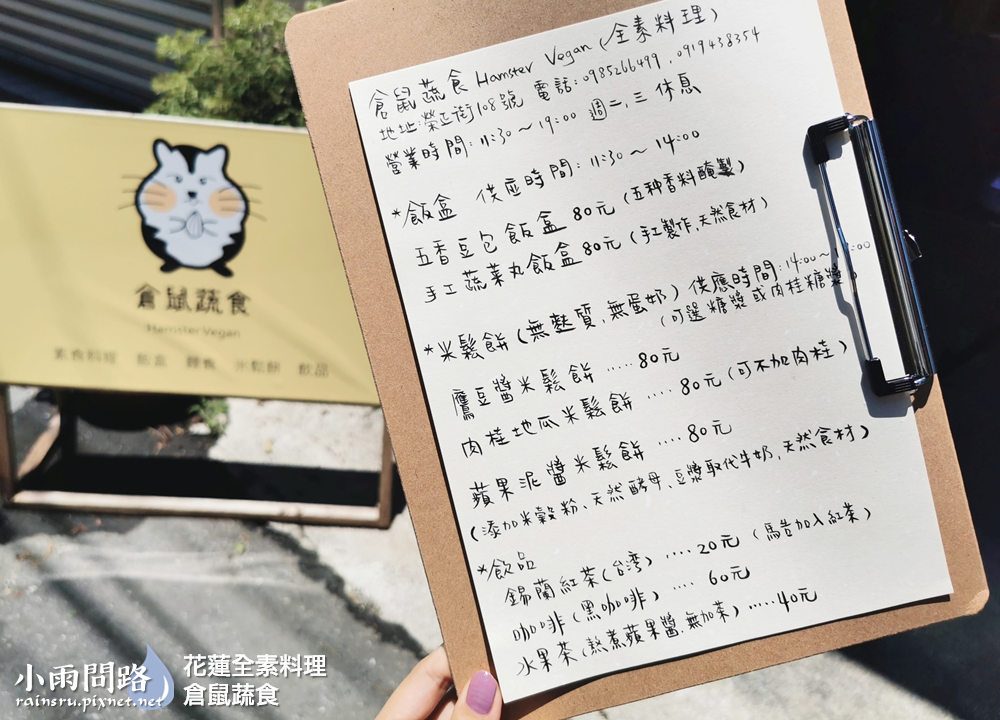 倉鼠蔬食 Hamster Vegan (全素料理)
地址:榮正街108號 電話:0985266499, 0919438354
營業時間:11:30~19:00 週二,三 休息
*飯盒 供應時間:11:30~14:00
五香豆包飯盒 80元 (五种香料醃製)
手工蔬菜丸飯盒80元 (手工製作,天然食材)
*米鬆餅(無麩質,無蛋奶) 供應時間:14:00~
(可選糖漿 或肉桂糖漿)
鷹豆醬米鬆餅 ..... 80元
肉桂地瓜米鬆餅 .... 80元 (可不加肉桂)
蘋果泥醬米鬆餅 .... 80元
(添加米穀粉、天然酵母、豆漿取代牛奶,天然食材)
*飲品
錫蘭紅茶(台湾) .... 20元 (馬告加入紅茶)
咖啡(黑咖啡) .... 60元
水果茶(熬煮蘋果醬.無加茶) ..... 40元
倉鼠蔬食
Hamster Vegan
素食料理 飯盒 麵食 米鬆餅 飲品
小雨問路
rainsru.pixnet.net
花蓮全素料理
倉鼠蔬食